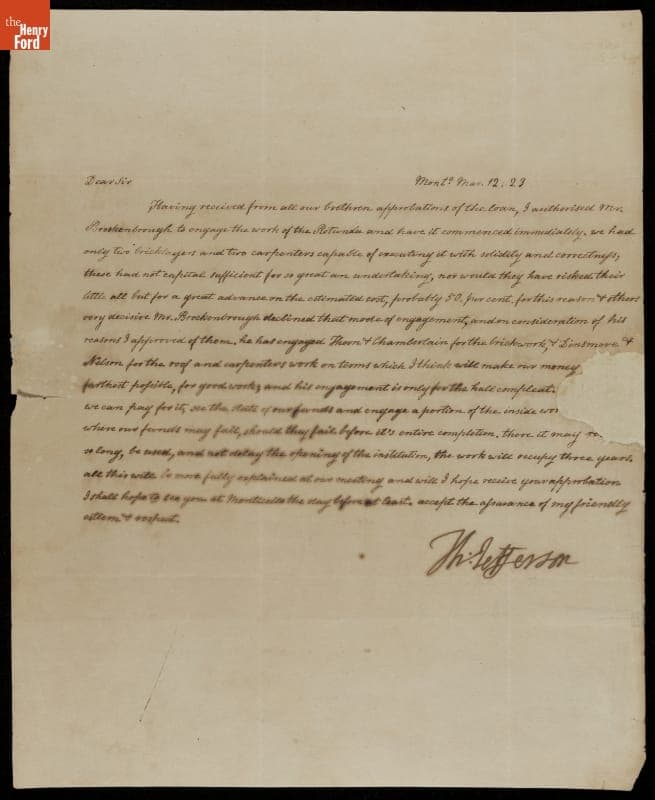 the
Henry
Ford
Dear Sir Monto. Mar. 12. 23
Having received from all our brethren approbations of the loan, I authorised Mr.
Brockenbrough to engage the work of the Rotunda and have it commenced immediately. we had
only two bricklayers and two carpenters capable of executing it with solidity and correctness,
these had not capital sufficient for so great an undertaking, nor would they have risked their
little all but for a great advance on the estimated cost, probably 50. per cent. for this reason & others
very decisive Mr. Brockenbrough declined that mode of engagement, and on consideration of his
reasons I approved of them. he has engaged Thorn & Chamberlain for the brickwork, & Dinsmore &
Nelson for the roof and carpenters work on terms which I think will make our money
farthest possible, for good work; and his engagement is only for the hull compleat.
we can pay for it, see the state of our funds and engage a portion of the inside
where our funds may fail, should they fail before it's entire completion. there it may
so long, be used, and not delay the opening of the institution, the work will occupy three years.
all this will be more fully explained at our meeting and will I hope receive your approbation
I shall hope to see you at Monticello the day before at least. accept the assurance of my friendly
esteem & respect.
Th: Jefferson